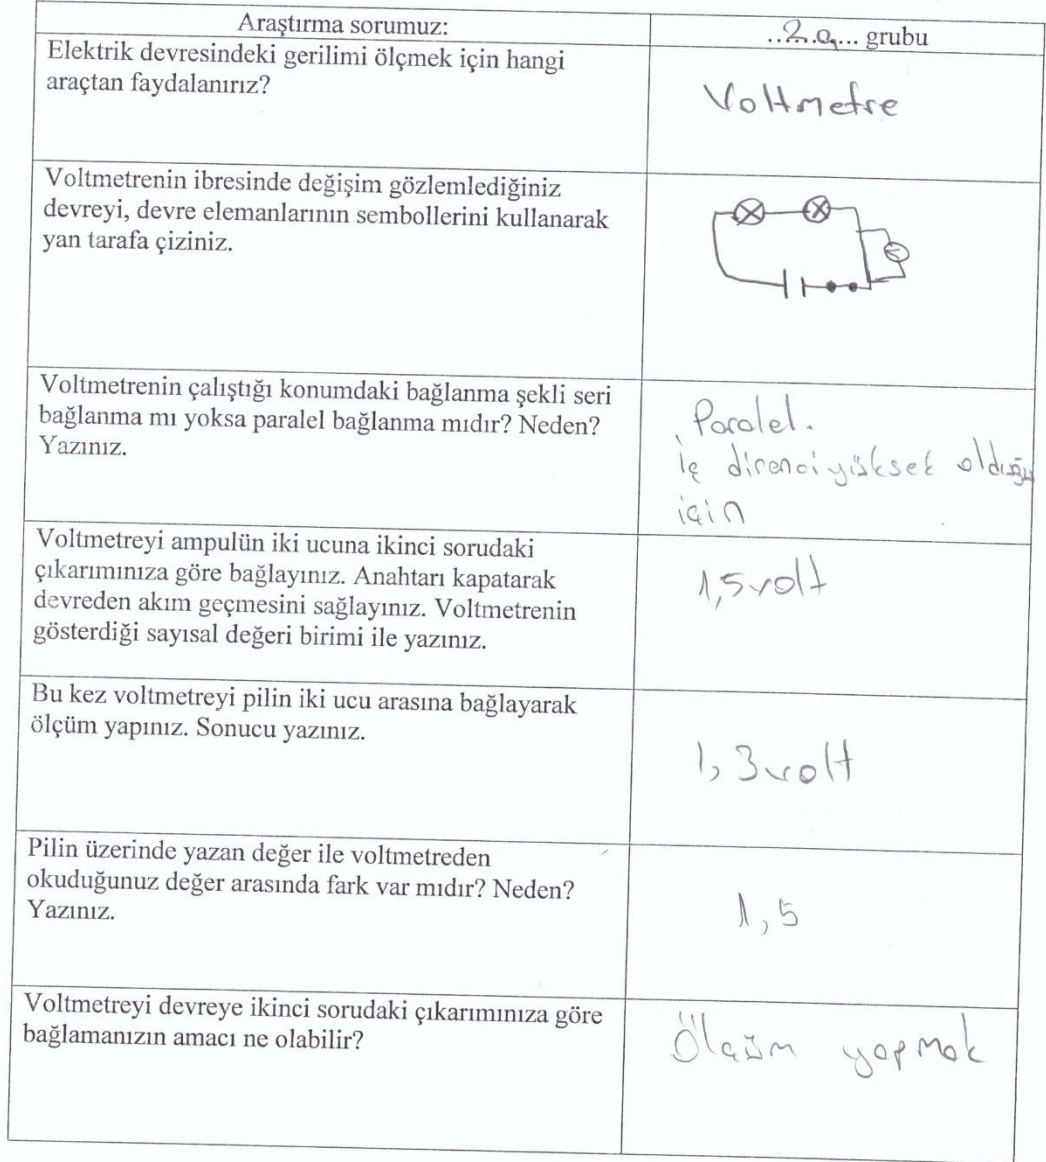 Araştırma sorumuz:
..2.a... grubu
Elektrik devresindeki gerilimi ölçmek için hangi
araçtan faydalanırız?
Voltmetre
Voltmetrenin ibresinde değişim gözlemlediğiniz
devreyi, devre elemanlarının sembollerini kullanarak
yan tarafa çiziniz.
Voltmetrenin çalıştığı konumdaki bağlanma şekli seri
bağlanma mı yoksa paralel bağlanma mıdır? Neden?
Yazınız.
Paralel.
iç direnci yüksek olduğu
için
Voltmetreyi ampulün iki ucuna ikinci sorudaki
çıkarımınıza göre bağlayınız. Anahtarı kapatarak
devreden akım geçmesini sağlayınız. Voltmetrenin
gösterdiği sayısal değeri birimi ile yazınız.
1,5 volt
Bu kez voltmetreyi pilin iki ucu arasına bağlayarak
ölçüm yapınız. Sonucu yazınız.
1,3 volt
Pilin üzerinde yazan değer ile voltmetreden
okuduğunuz değer arasında fark var mıdır? Neden?
Yazınız.
1,5
Voltmetreyi devreye ikinci sorudaki çıkarımınıza göre
bağlamanızın amacı ne olabilir?
Ölçüm yapmak